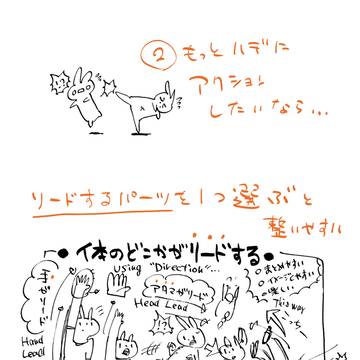 ② もっとハデに
アクション
したいなら…
リードするパーツを1つ選ぶと
整いやすい
•体のどこかがリードする•
using "Direction"…
手がリード
Hand
Lead
アタマがリード
Head Lead
○まとめやすい
○イメージしやすい
○楽しい
This way